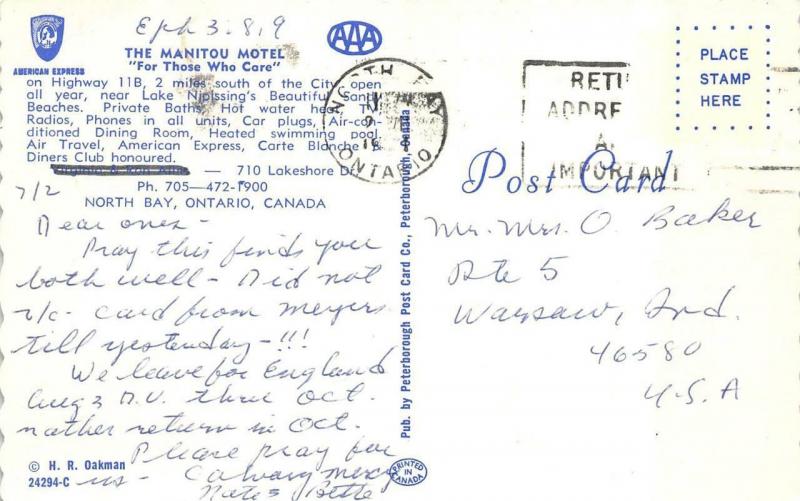 Eph 3-8,9
AAA
AMERICAN EXPRESS
THE MANITOU MOTEL
"For Those Who Care"
on Highway 11B, 2 miles south of the City, open
all year, near Lake Nipissing's Beautiful Sand
Beaches. Private Baths, Hot water heat,
Radios, Phones in all units, Car plugs, Air-con-
ditioned Dining Room, Heated swimming pool,
Air Travel, American Express, Carte Blanche &
Diners Club honoured.
— 710 Lakeshore Dr.
Ph. 705—472-1900
NORTH BAY, ONTARIO, CANADA
7/2
Dear ones -
Pray this finds you
both well - Did not
r/c- card from Meyers
till yesterday - !!!
We leave for England
Aug 3 D.V. thru Oct.
rather return in Oct.
Please pray for
us - Calvary mercy
© H. R. Oakman
24294-C
Pub. by Peterborough Post Card Co., Peterborough, Canada
PRINTED IN CANADA
NORTH BAY
ONTARIO
RETU
ADDRE
IMPORTANT
PLACE
STAMP
HERE
Post Card
Mr. Mrs. O. Baker
Rte 5
Warsaw, Ind.
46580
U.S.A